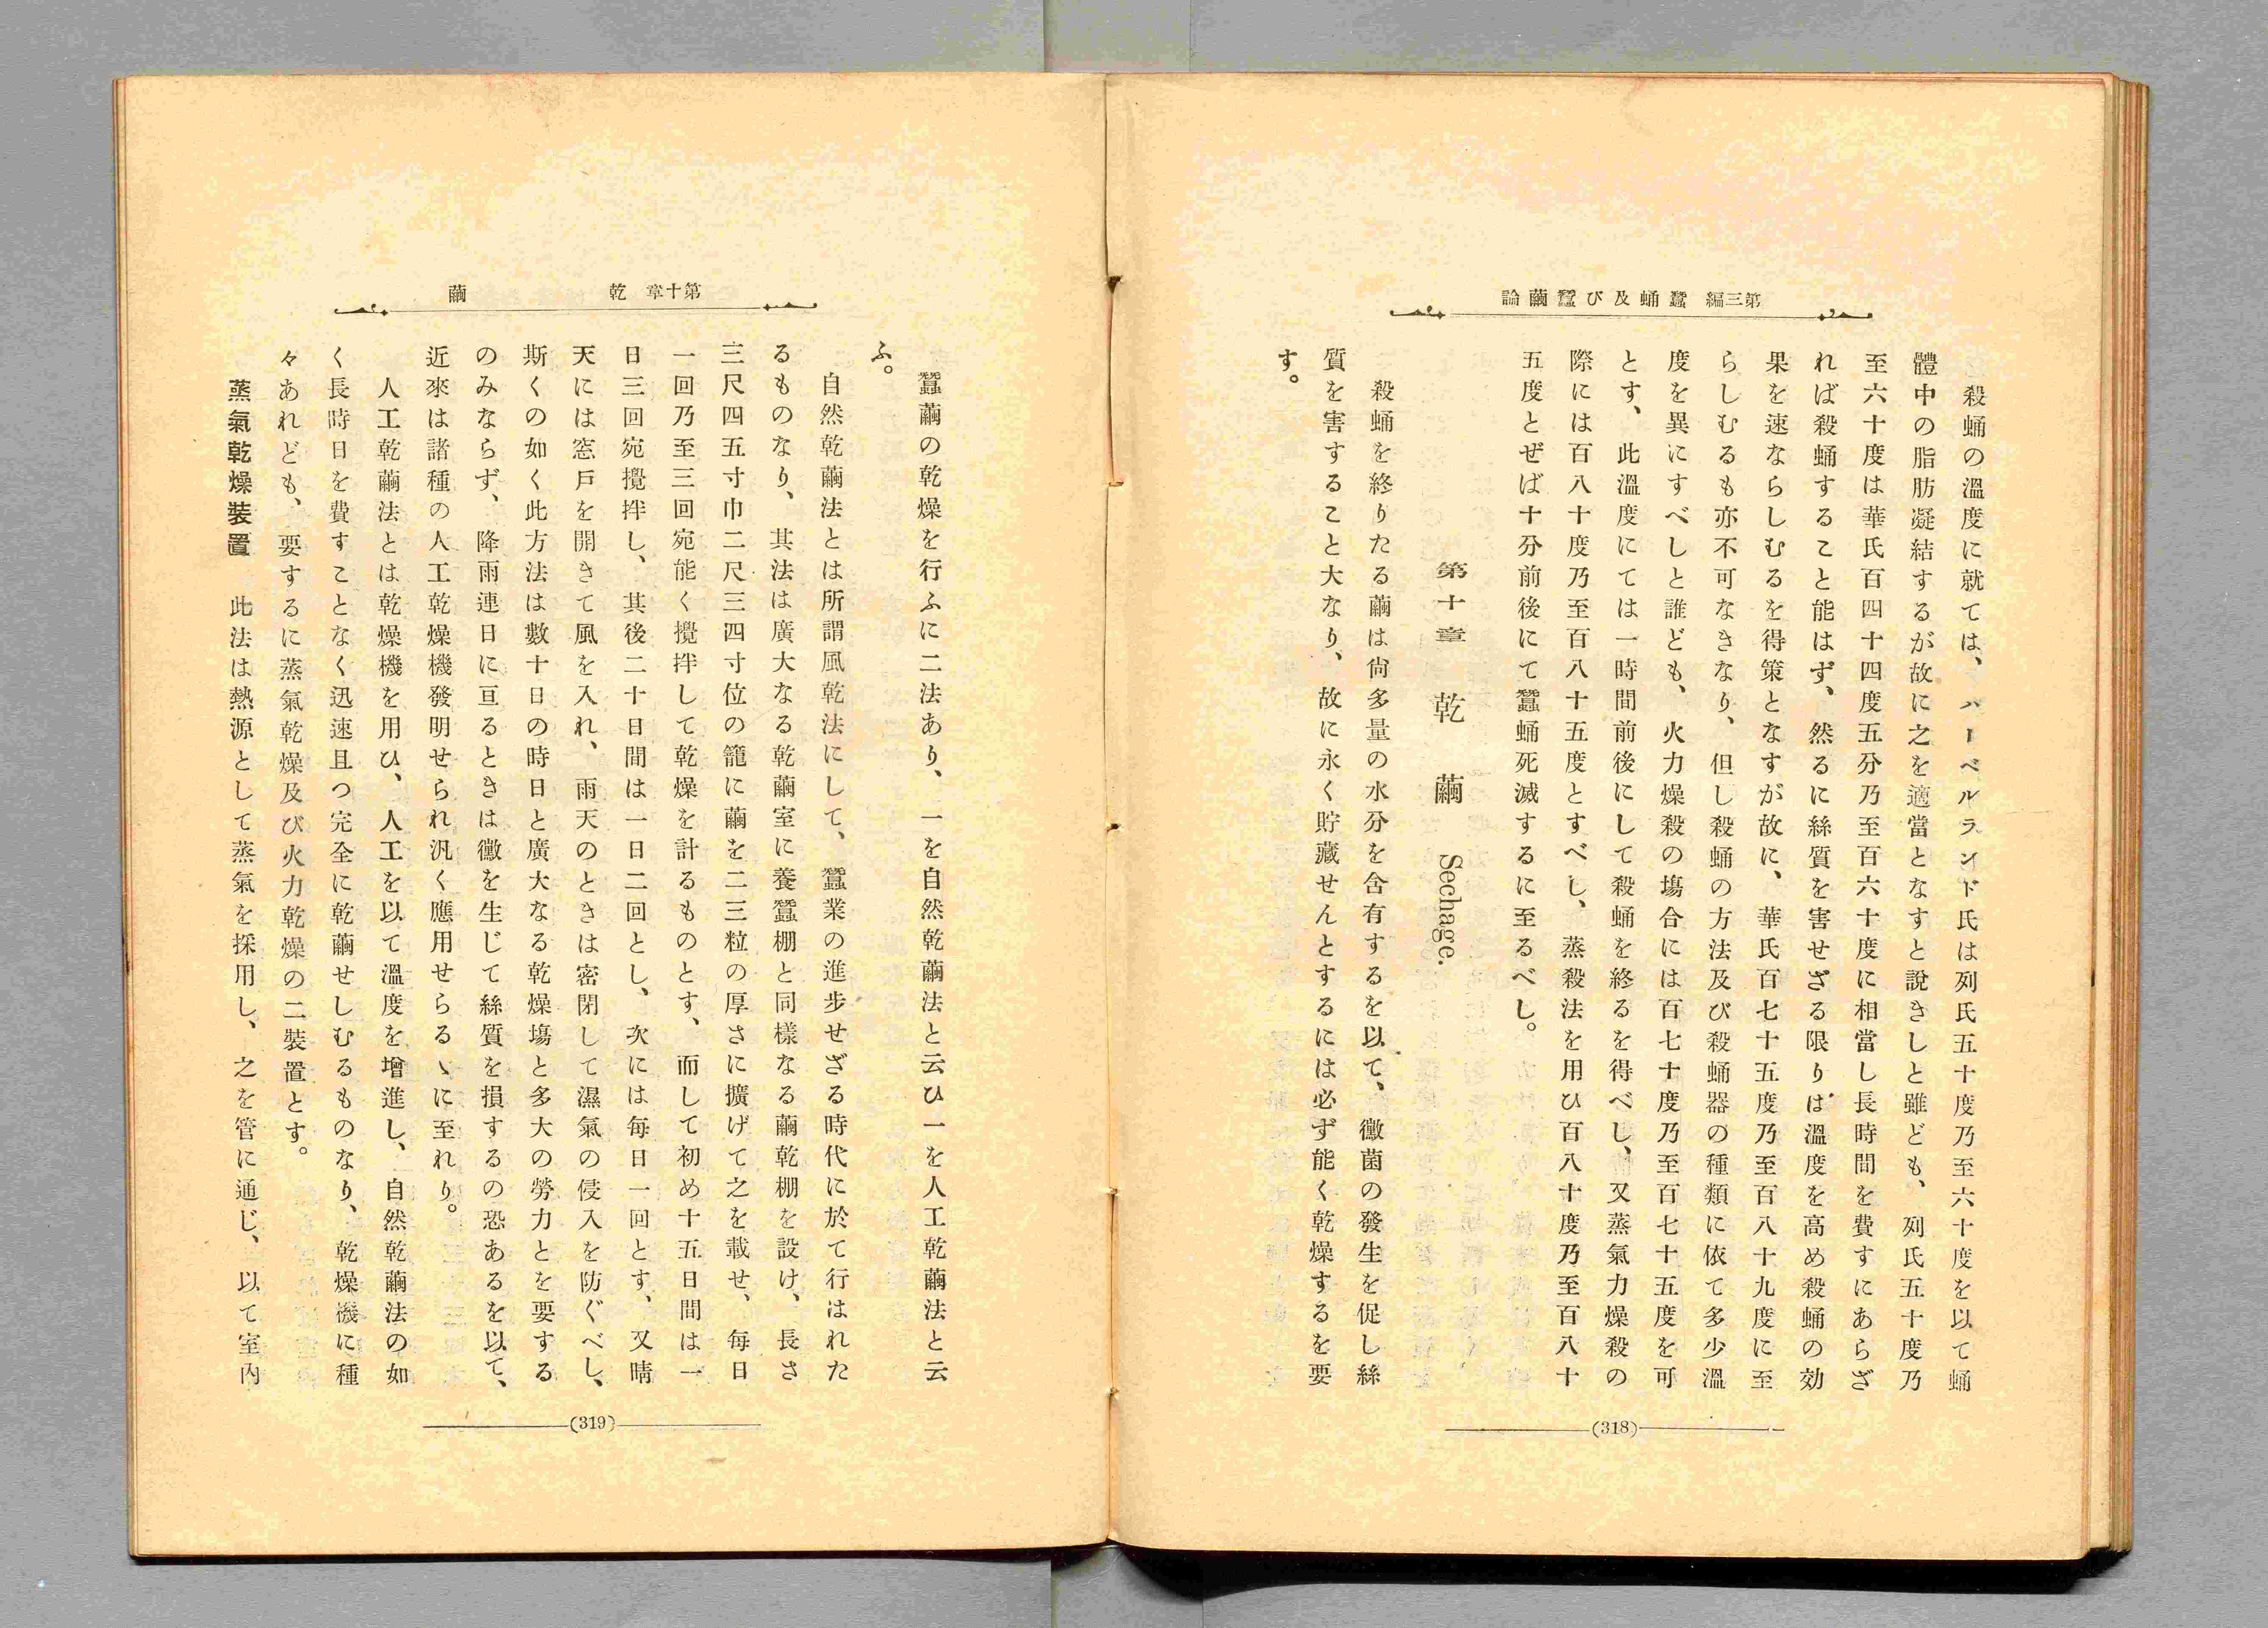 第三編　蠶蛹及び蠶繭論
殺蛹の溫度に就ては、ハーベルランド氏は列氏五十度乃至六十度を以て蛹
體中の脂肪凝結するが故に之を適當となすと說きしと雖ども、列氏五十度乃
至六十度は華氏百四十四度五分乃至百六十度に相當し長時間を費すにあらざ
れば殺蛹すること能はず、然るに絲質を害せざる限りは溫度を高め殺蛹の効
果を速ならしむるを得策となすが故に、華氏百七十五度乃至百八十九度に至
らしむるも亦不可なきなり、但し殺蛹の方法及び殺蛹器の種類に依て多少溫
度を異にすべしと誰ども、火力燥殺の塲合には百七十度乃至百七十五度を可
とす、此溫度にては一時間前後にして殺蛹を終るを得べし、又蒸氣力燥殺の
際には百八十度乃至百八十五度とすべし、蒸殺法を用ひ百八十度乃至百八十
五度とぜば十分前後にて蠶蛹死滅するに至るべし。
第十章　乾　繭　Sechage.
殺蛹を終りたる繭は尙多量の水分を含有するを以て、黴菌の發生を促し絲
質を害すること大なり、故に永く貯藏せんとするには必ず能く乾燥するを要
す。
(318)
第十章　乾　繭
蠶繭の乾燥を行ふに二法あり、一を自然乾繭法と云ひ一を人工乾繭法と云
ふ。
自然乾繭法とは所謂風乾法にして、蠶業の進步せざる時代に於て行はれた
るものなり、其法は廣大なる乾繭室に養蠶棚と同樣なる繭乾棚を設け、長さ
三尺四五寸巾二尺三四寸位の籠に繭を二三粒の厚さに擴げて之を載せ、每日
一回乃至三回宛能く攪拌して乾燥を計るものとす、而して初め十五日間は一
日三回宛攪拌し、其後二十日間は一日二回とし、次には每日一回とす、又晴
天には窓戶を開きて風を入れ、雨天のときは密閉して濕氣の侵入を防ぐべし、
斯くの如く此方法は數十日の時日と廣大なる乾燥塲と多大の勞力とを要する
のみならず、降雨連日に亘るときは黴を生じて絲質を損するの恐あるを以て、
近來は諸種の人工乾燥機發明せられ汎く應用せらるゝに至れり。
人工乾繭法とは乾燥機を用ひ、人工を以て溫度を增進し、自然乾繭法の如
く長時日を費すことなく迅速且つ完全に乾繭せしむるものなり、乾燥機に種
々あれども、要するに蒸氣乾燥及び火力乾燥の二裝置とす。
蒸氣乾燥裝置　此法は熱源として蒸氣を採用し、之を管に通じ、以て室內
(319)